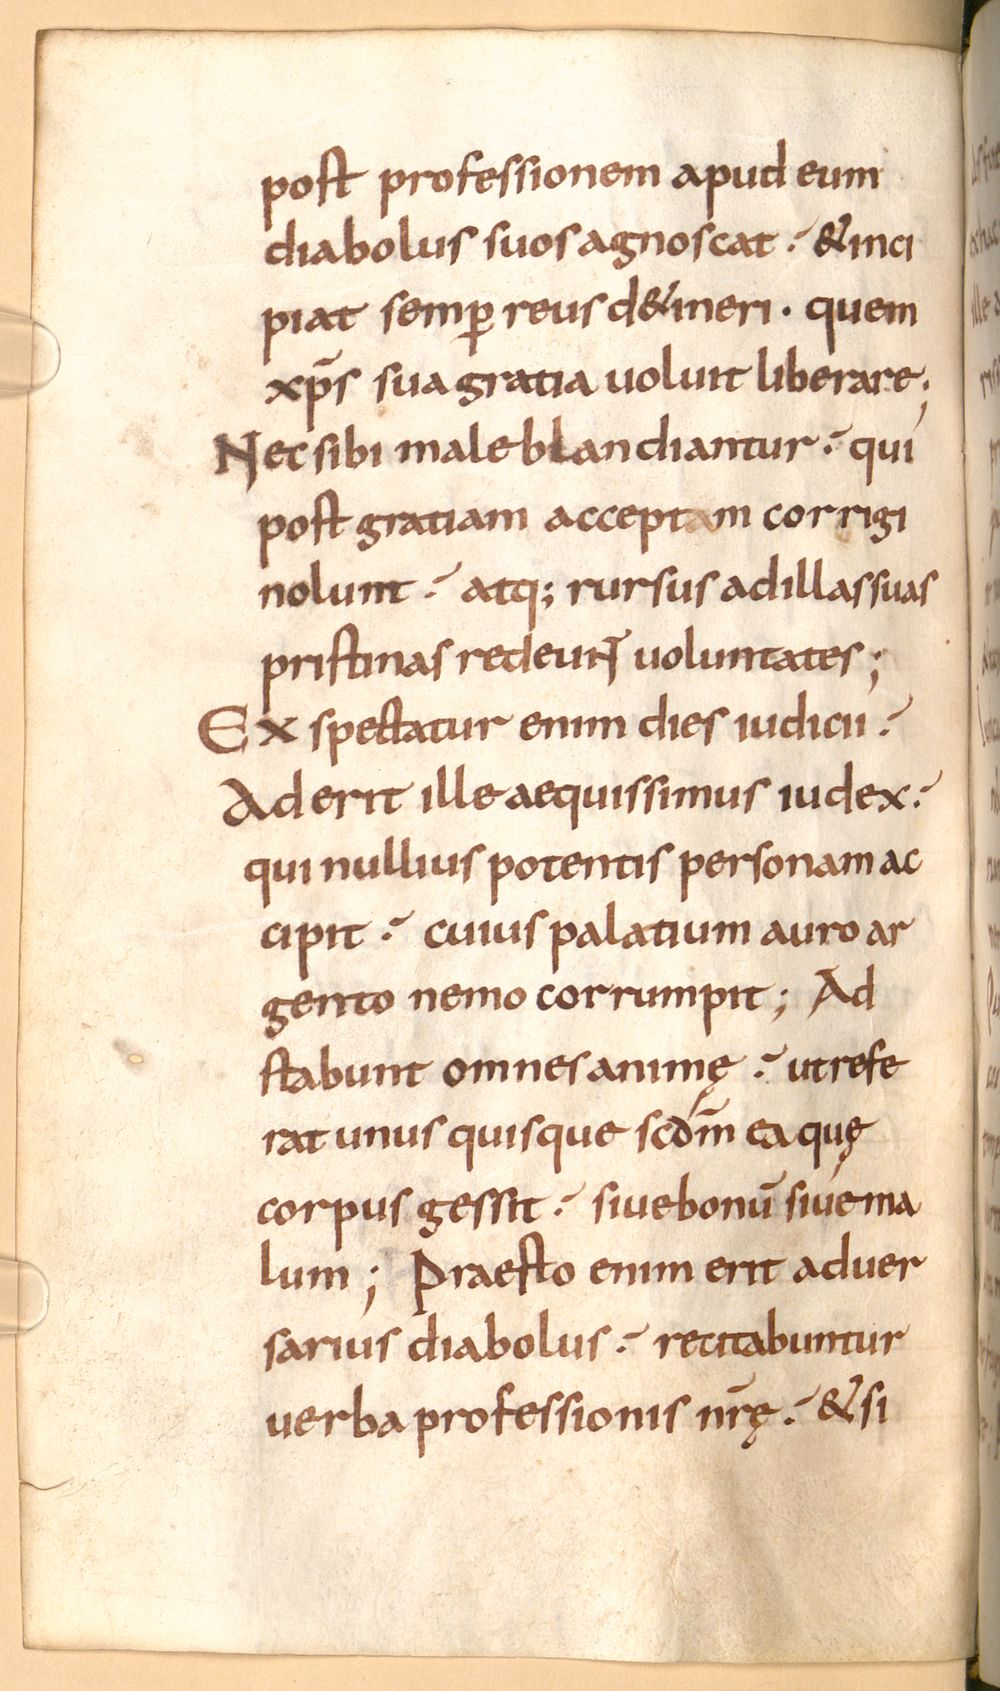 post professionem apud eum
diabolus suos agnoscat· &inci
piat semp̱ reus d&ineri · quem
xp̄s sua gratia uoluit liberare;
Nec sibi male blandiantur· qui
post gratiam acceptam corrigi
nolunt · atq; rursus ad illas suas
pristinas redeunt uoluntates;
Exspectatur enim dies iudicii·
Aderit ille aequissimus iudex·
qui nullius potentis personam ac
cipit · cuius palatium auro ar
gento nemo corrumpit; Ad
stabunt omnes animę · ut refe
rat unus quisque scd̄m ea quę
corpus gessit · siue bonū siue ma
lum; Praesto enim erit aduer
sarius diabolus· recitabuntur
uerba professionis nr̄ę· & si